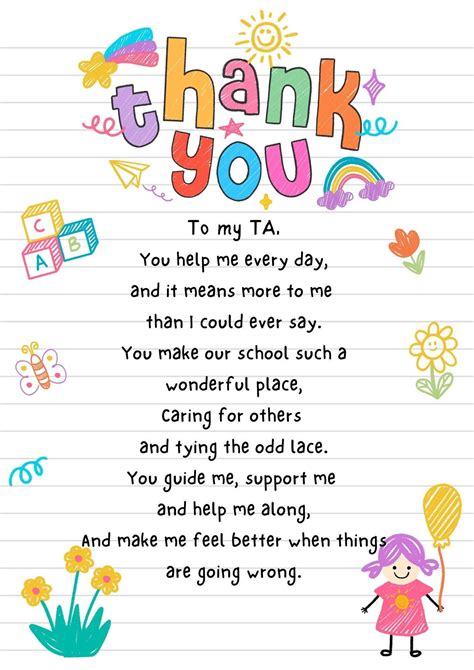 thank
you
To my TA.
You help me every day,
and it means more to me
than I could ever say.
You make our school such a
wonderful place,
Caring for others
and tying the odd lace.
You guide me, support me
and help me along,
And make me feel better when things
are going wrong.
C
A B